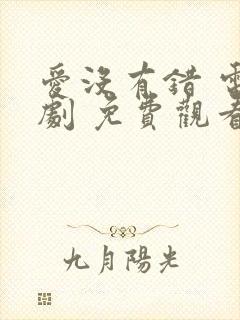 愛沒有錯 電
劇 免費觀看
九月陽光